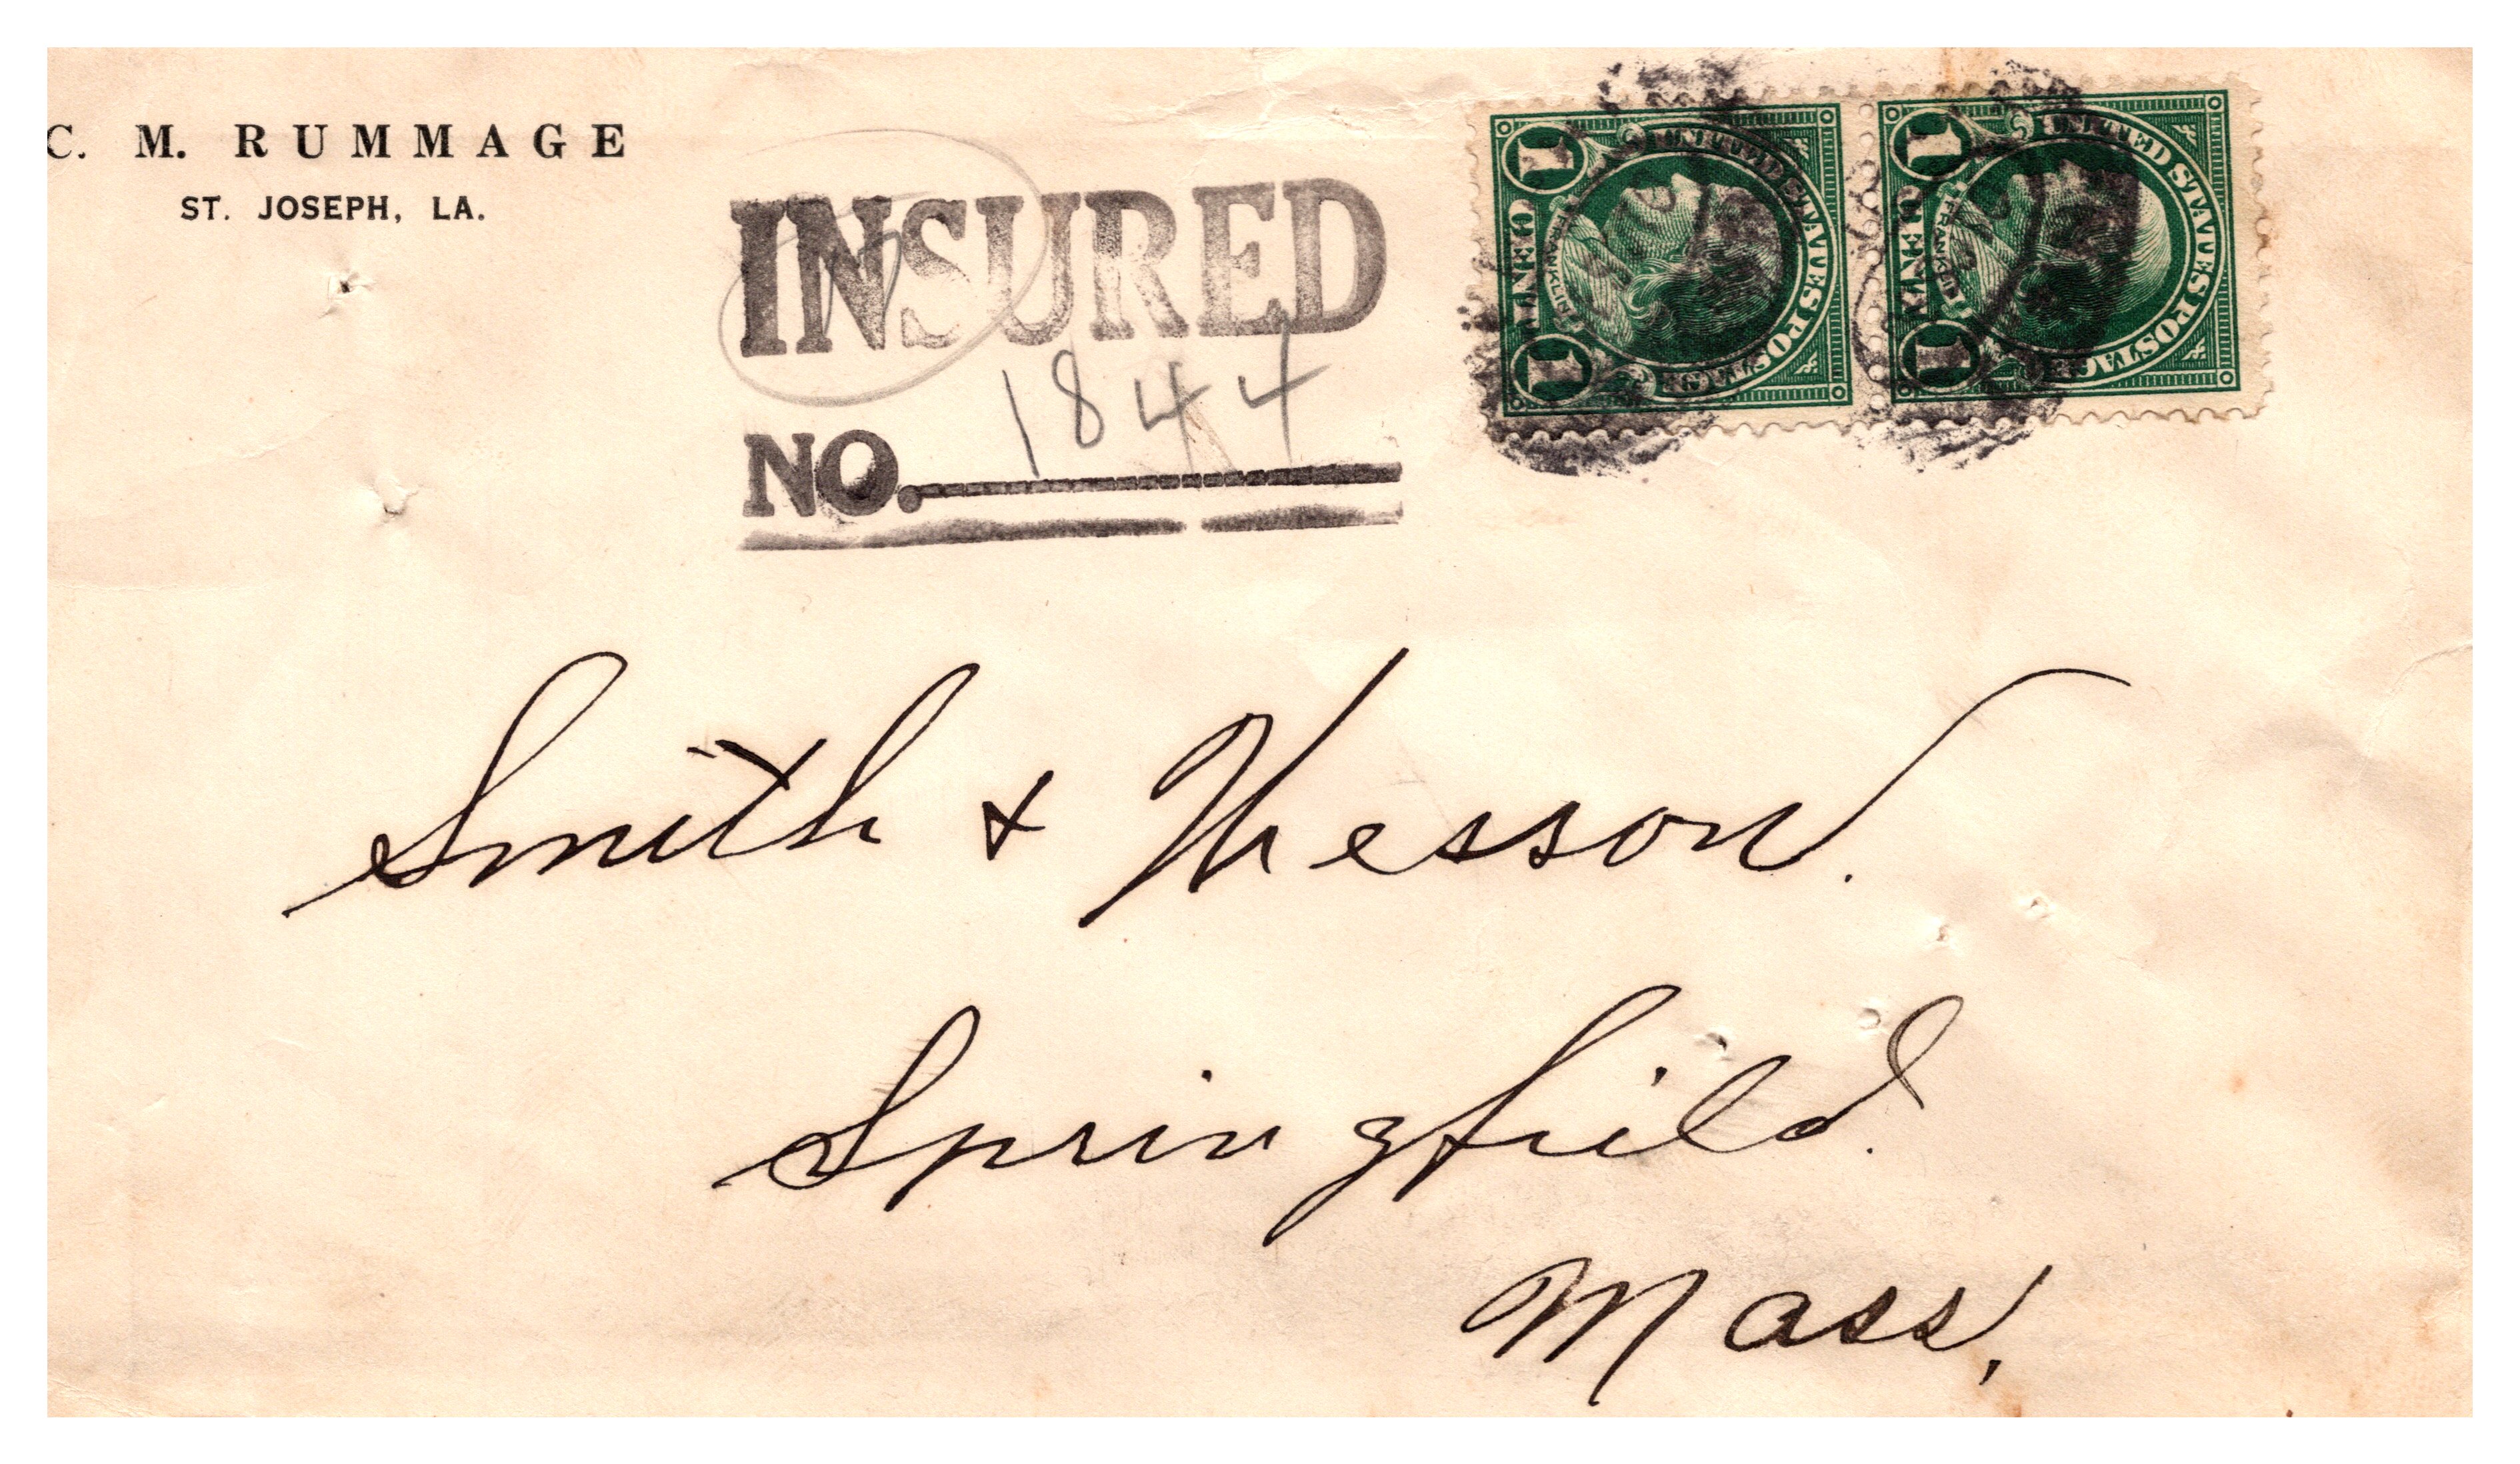 C. M. RUMMAGE
ST. JOSEPH, LA.
INSURED
NO. 1844
UNITED STATES POSTAGE
FRANKLIN
1 ONE CENT 1
UNITED STATES POSTAGE
FRANKLIN
1 ONE CENT 1
Smith & Wesson.
Springfield.
Mass.